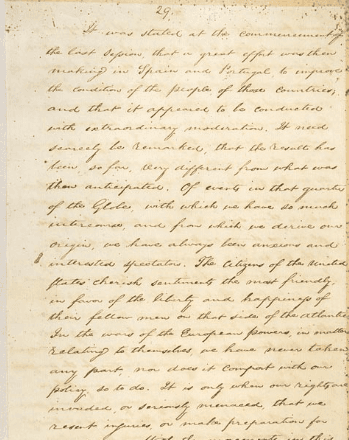 29.
It was stated at the commencement of
the last session, that a great effort was then
making in Spain and Portugal to improve
the condition of the people of those countries,
and that it appeared to be conducted
with extraordinary moderation. It need
scarcely be remarked, that the result has
been, so far, very different from what was
then anticipated. Of events in that quarter
of the Globe, with which we have so much
intercourse, and from which we derive our
origin, we have always been anxious and
interested spectators. The Citizens of the United
States cherish sentiments the most friendly,
in favor of the liberty and happiness of
their fellow men on that side of the Atlantic.
In the wars of the European powers, in matters
relating to themselves, we have never taken
any part, nor does it comport with our
policy, so to do. It is only when our rights are
invaded, or seriously menaced, that we
resent injuries, or make preparation for